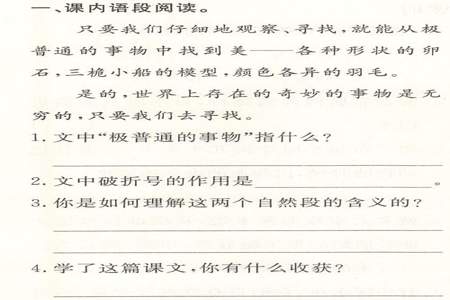 一、课内语段阅读。
只要我们仔细地观察、寻找,就能从极
普通的事物中找到美——各种形状的卵
石,三桅小船的模型,颜色各异的羽毛。
是的,世界上存在的奇妙的事物是无
穷的,只要我们去寻找。
1. 文中“极普通的事物”指什么?
2. 文中破折号的作用是____________。
3. 你是如何理解这两个自然段的含义的?
4. 学了这篇课文,你有什么收获?